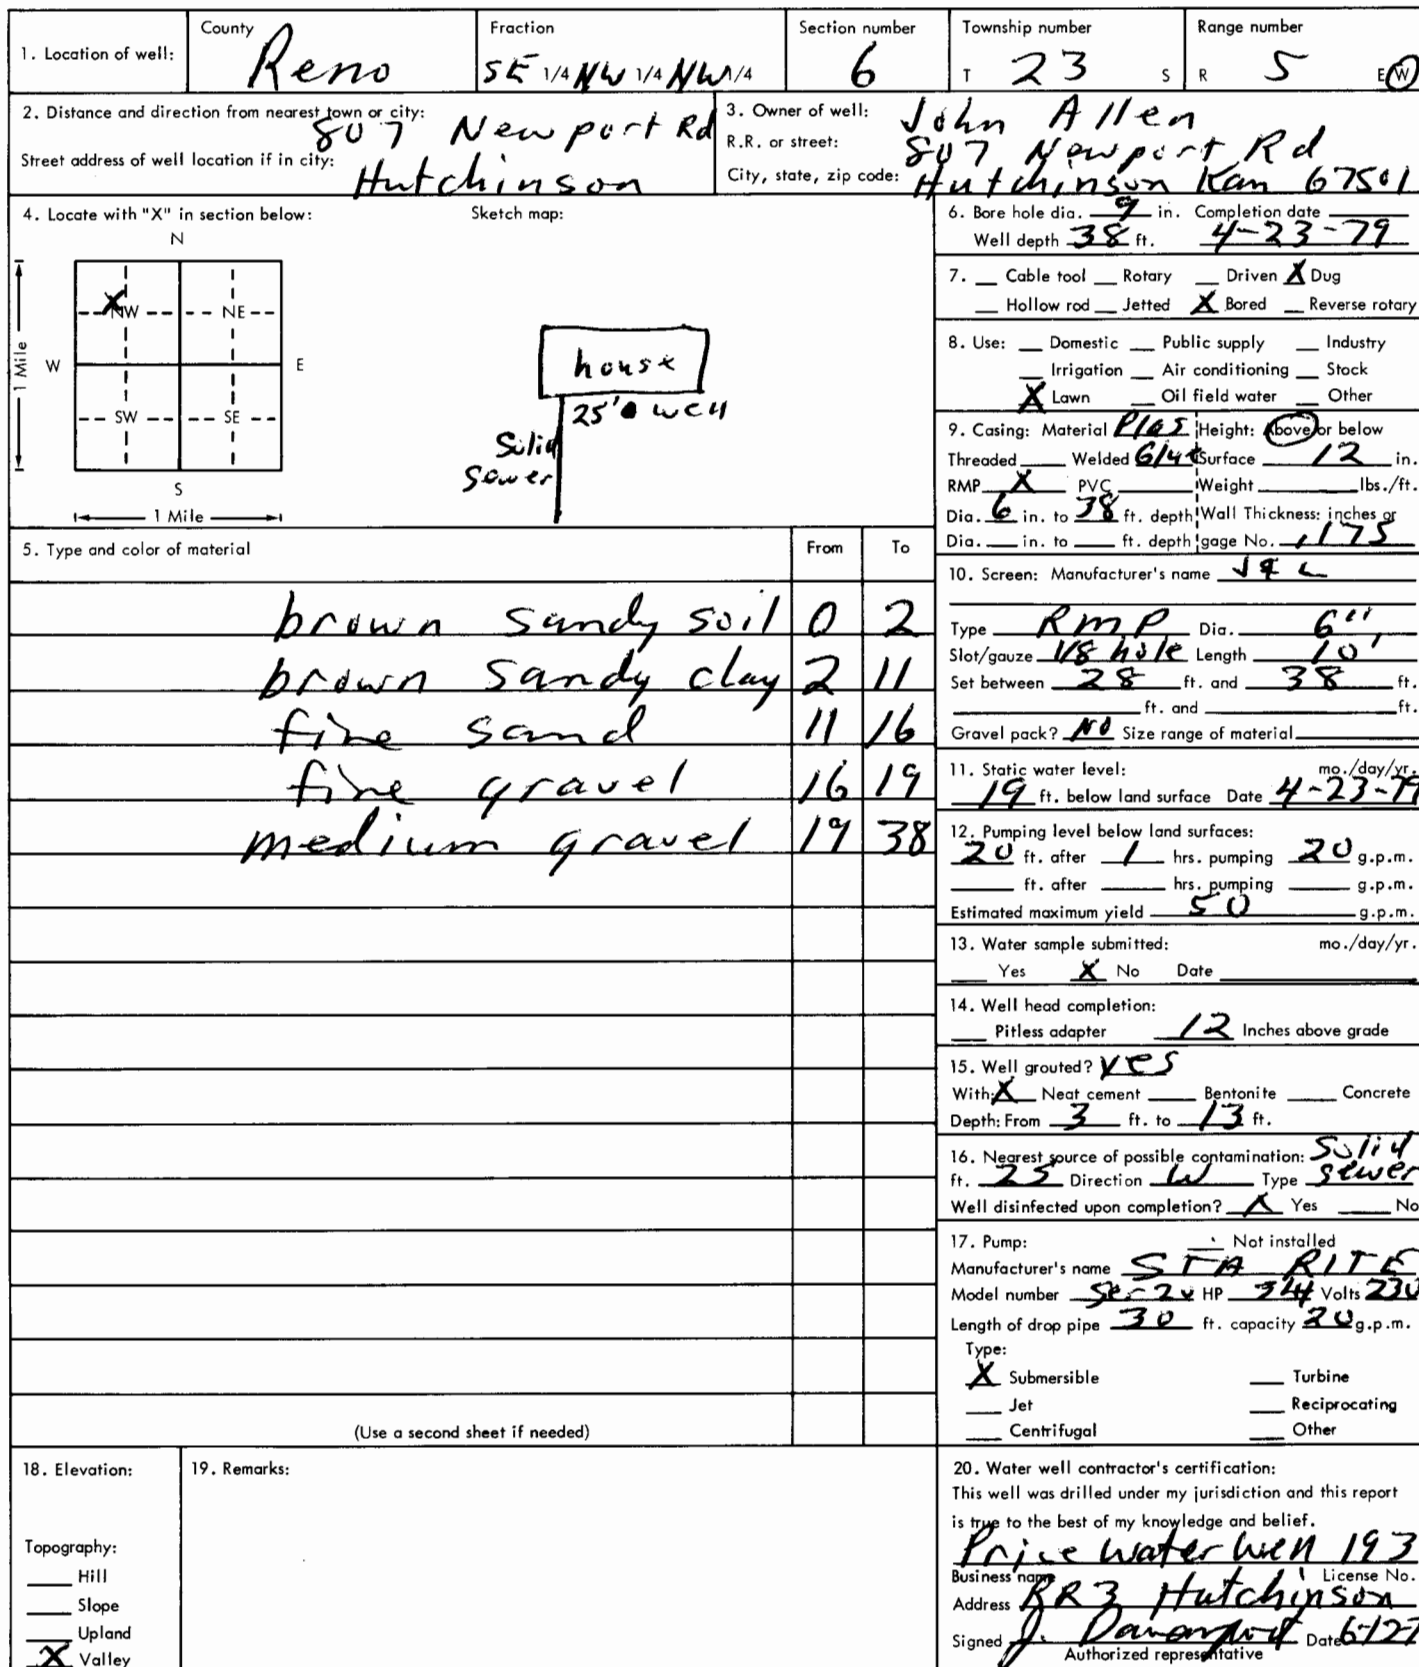 1. Location of well: County Reno Fraction SE 1/4 NW 1/4 NW 1/4 Section number 6 Township number T 23 S Range number R 5 E W
2. Distance and direction from nearest town or city: 807 Newport Rd
Street address of well location if in city: Hutchinson
3. Owner of well: John Allen
R.R. or street: 807 Newport Rd
City, state, zip code: Hutchinson Kan 67501
4. Locate with "X" in section below: Sketch map:
N
X NW NE
W E
1 Mile
SW SE
S
1 Mile
house
25' well
Solid
Sewer
5. Type and color of material From To
brown sandy soil 0 2
brown sandy clay 2 11
fine sand 11 16
fine gravel 16 19
medium gravel 19 38
(Use a second sheet if needed)
6. Bore hole dia. 9 in. Completion date
Well depth 38 ft. 4-23-79
7. __ Cable tool __ Rotary __ Driven X Dug
__ Hollow rod __ Jetted X Bored __ Reverse rotary
8. Use: __ Domestic __ Public supply __ Industry
__ Irrigation __ Air conditioning __ Stock
X Lawn __ Oil field water __ Other
9. Casing: Material Plas Height: Above or below
Threaded ____ Welded Surface 12 in.
RMP X PVC ____ Weight ____ lbs./ft.
Dia. 6 in. to 38 ft. depth Wall Thickness: inches or
Dia. __ in. to __ ft. depth gage No. .175
10. Screen: Manufacturer's name
Type RMP Dia. 6"
Slot/gauze 1/8 hole Length 10'
Set between 28 ft. and 38 ft.
____ ft. and ____ ft.
Gravel pack? No Size range of material ____
11. Static water level: mo./day/yr.
19 ft. below land surface Date 4-23-79
12. Pumping level below land surfaces:
20 ft. after 1 hrs. pumping 20 g.p.m.
____ ft. after ____ hrs. pumping ____ g.p.m.
Estimated maximum yield 50 g.p.m.
13. Water sample submitted: mo./day/yr.
__ Yes X No Date ____
14. Well head completion:
__ Pitless adapter 12 Inches above grade
15. Well grouted? yes
With: X Neat cement ____ Bentonite ____ Concrete
Depth: From 3 ft. to 13 ft.
16. Nearest source of possible contamination: Solid
ft. 25 Direction W Type sewer
Well disinfected upon completion? X Yes ____ No
17. Pump: __ Not installed
Manufacturer's name STA RITE
Model number HP 3/4 Volts 230
Length of drop pipe 30 ft. capacity 20 g.p.m.
Type:
X Submersible __ Turbine
__ Jet __ Reciprocating
__ Centrifugal __ Other
18. Elevation:
Topography:
__ Hill
__ Slope
__ Upland
X Valley
19. Remarks:
20. Water well contractor's certification:
This well was drilled under my jurisdiction and this report
is true to the best of my knowledge and belief.
Price Water Well 193
Business name License No.
Address RR3 Hutchinson
Signed J. Davenport Date 6-12-7
Authorized representative